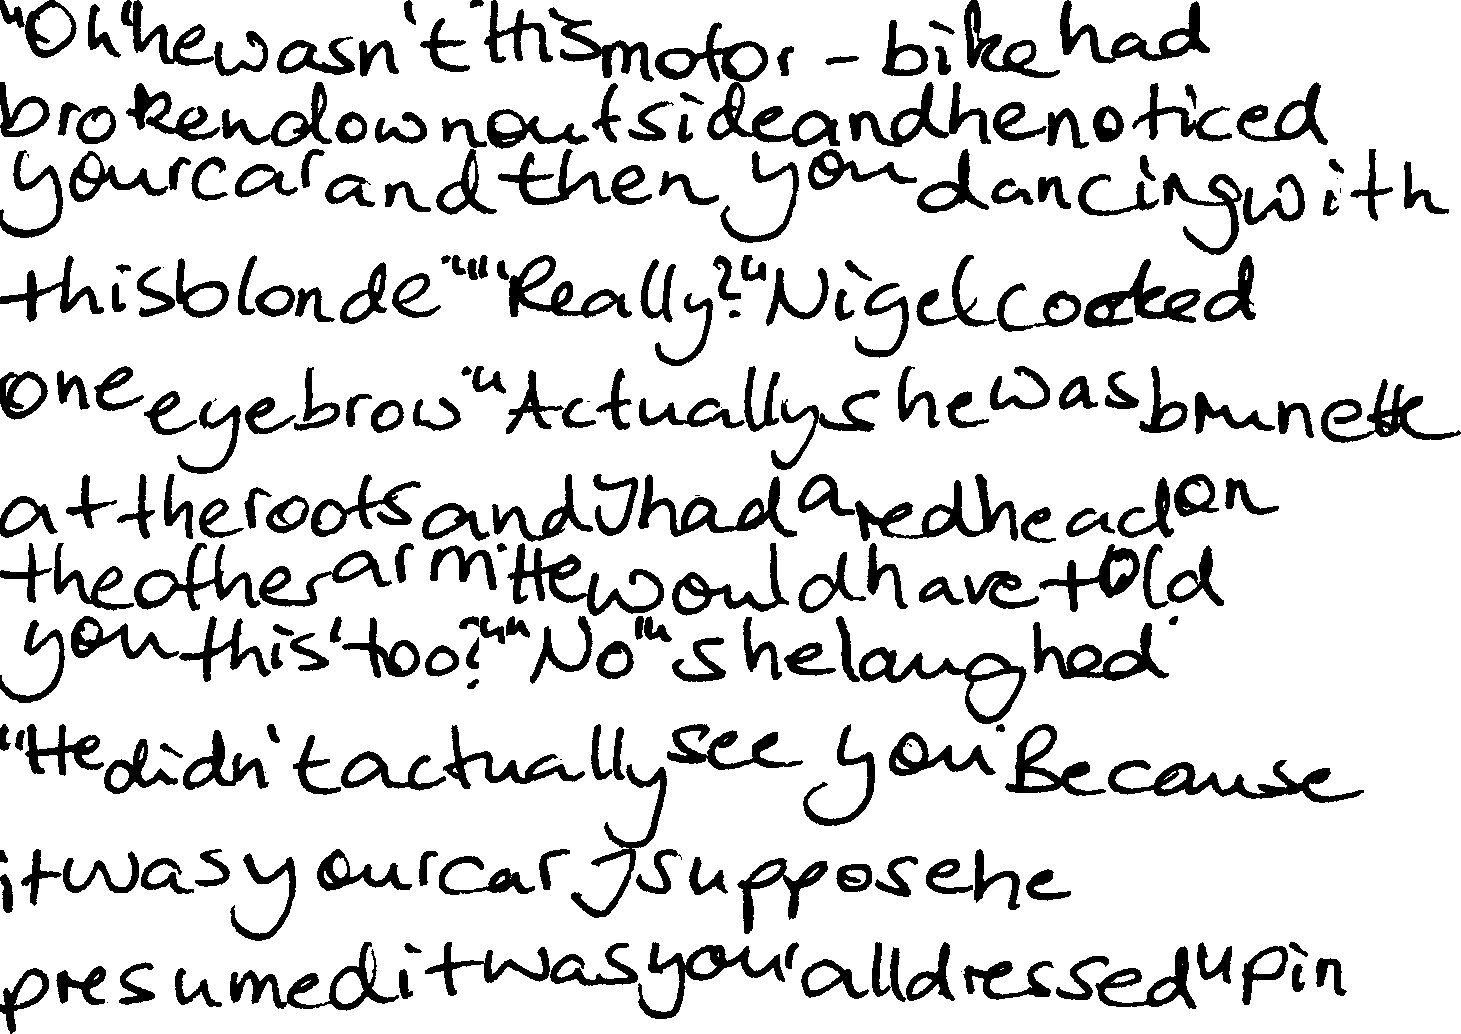 "Oh he wasn't. His motor - bike had
broken down outside and he noticed
your car and then you dancing with
this blonde." "Really?" Nigel cocked
one eyebrow. "Actually she was brunette
at the roots and I had a redhead on
the other arm. He would have told
you this too?" "No", she laughed.
"He didn't actually see you. Because
it was your car I suppose he
presumed it was you all dressed up in